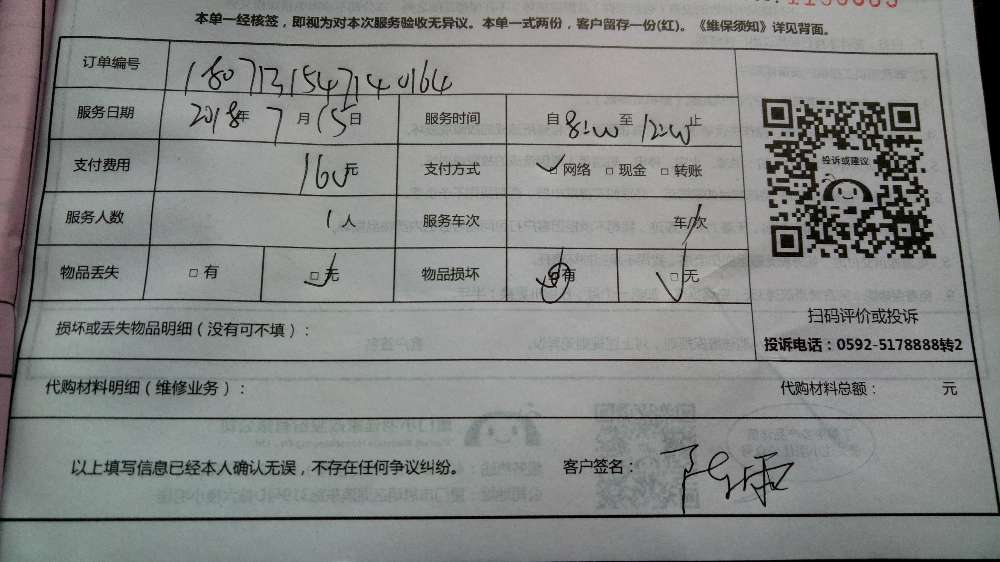 本单一经核签，即视为对本次服务验收无异议。本单一式两份，客户留存一份(红)。《维保须知》详见背面。
订单编号 1807131547140164
服务日期 2018年 7 月 15 日 服务时间 自 8:00 至 12:00 止
支付费用 160 元 支付方式 ✓□网络 □现金 □转账
服务人数 1 人 服务车次 车/次
物品丢失 □有 □无 物品损坏 □有 □无
投诉或建议
扫码评价或投诉
投诉电话：0592-5178888转2
损坏或丢失物品明细（没有可不填）：
代购材料明细（维修业务）： 代购材料总额： 元
以上填写信息已经本人确认无误，不存在任何争议纠纷。 客户签名：